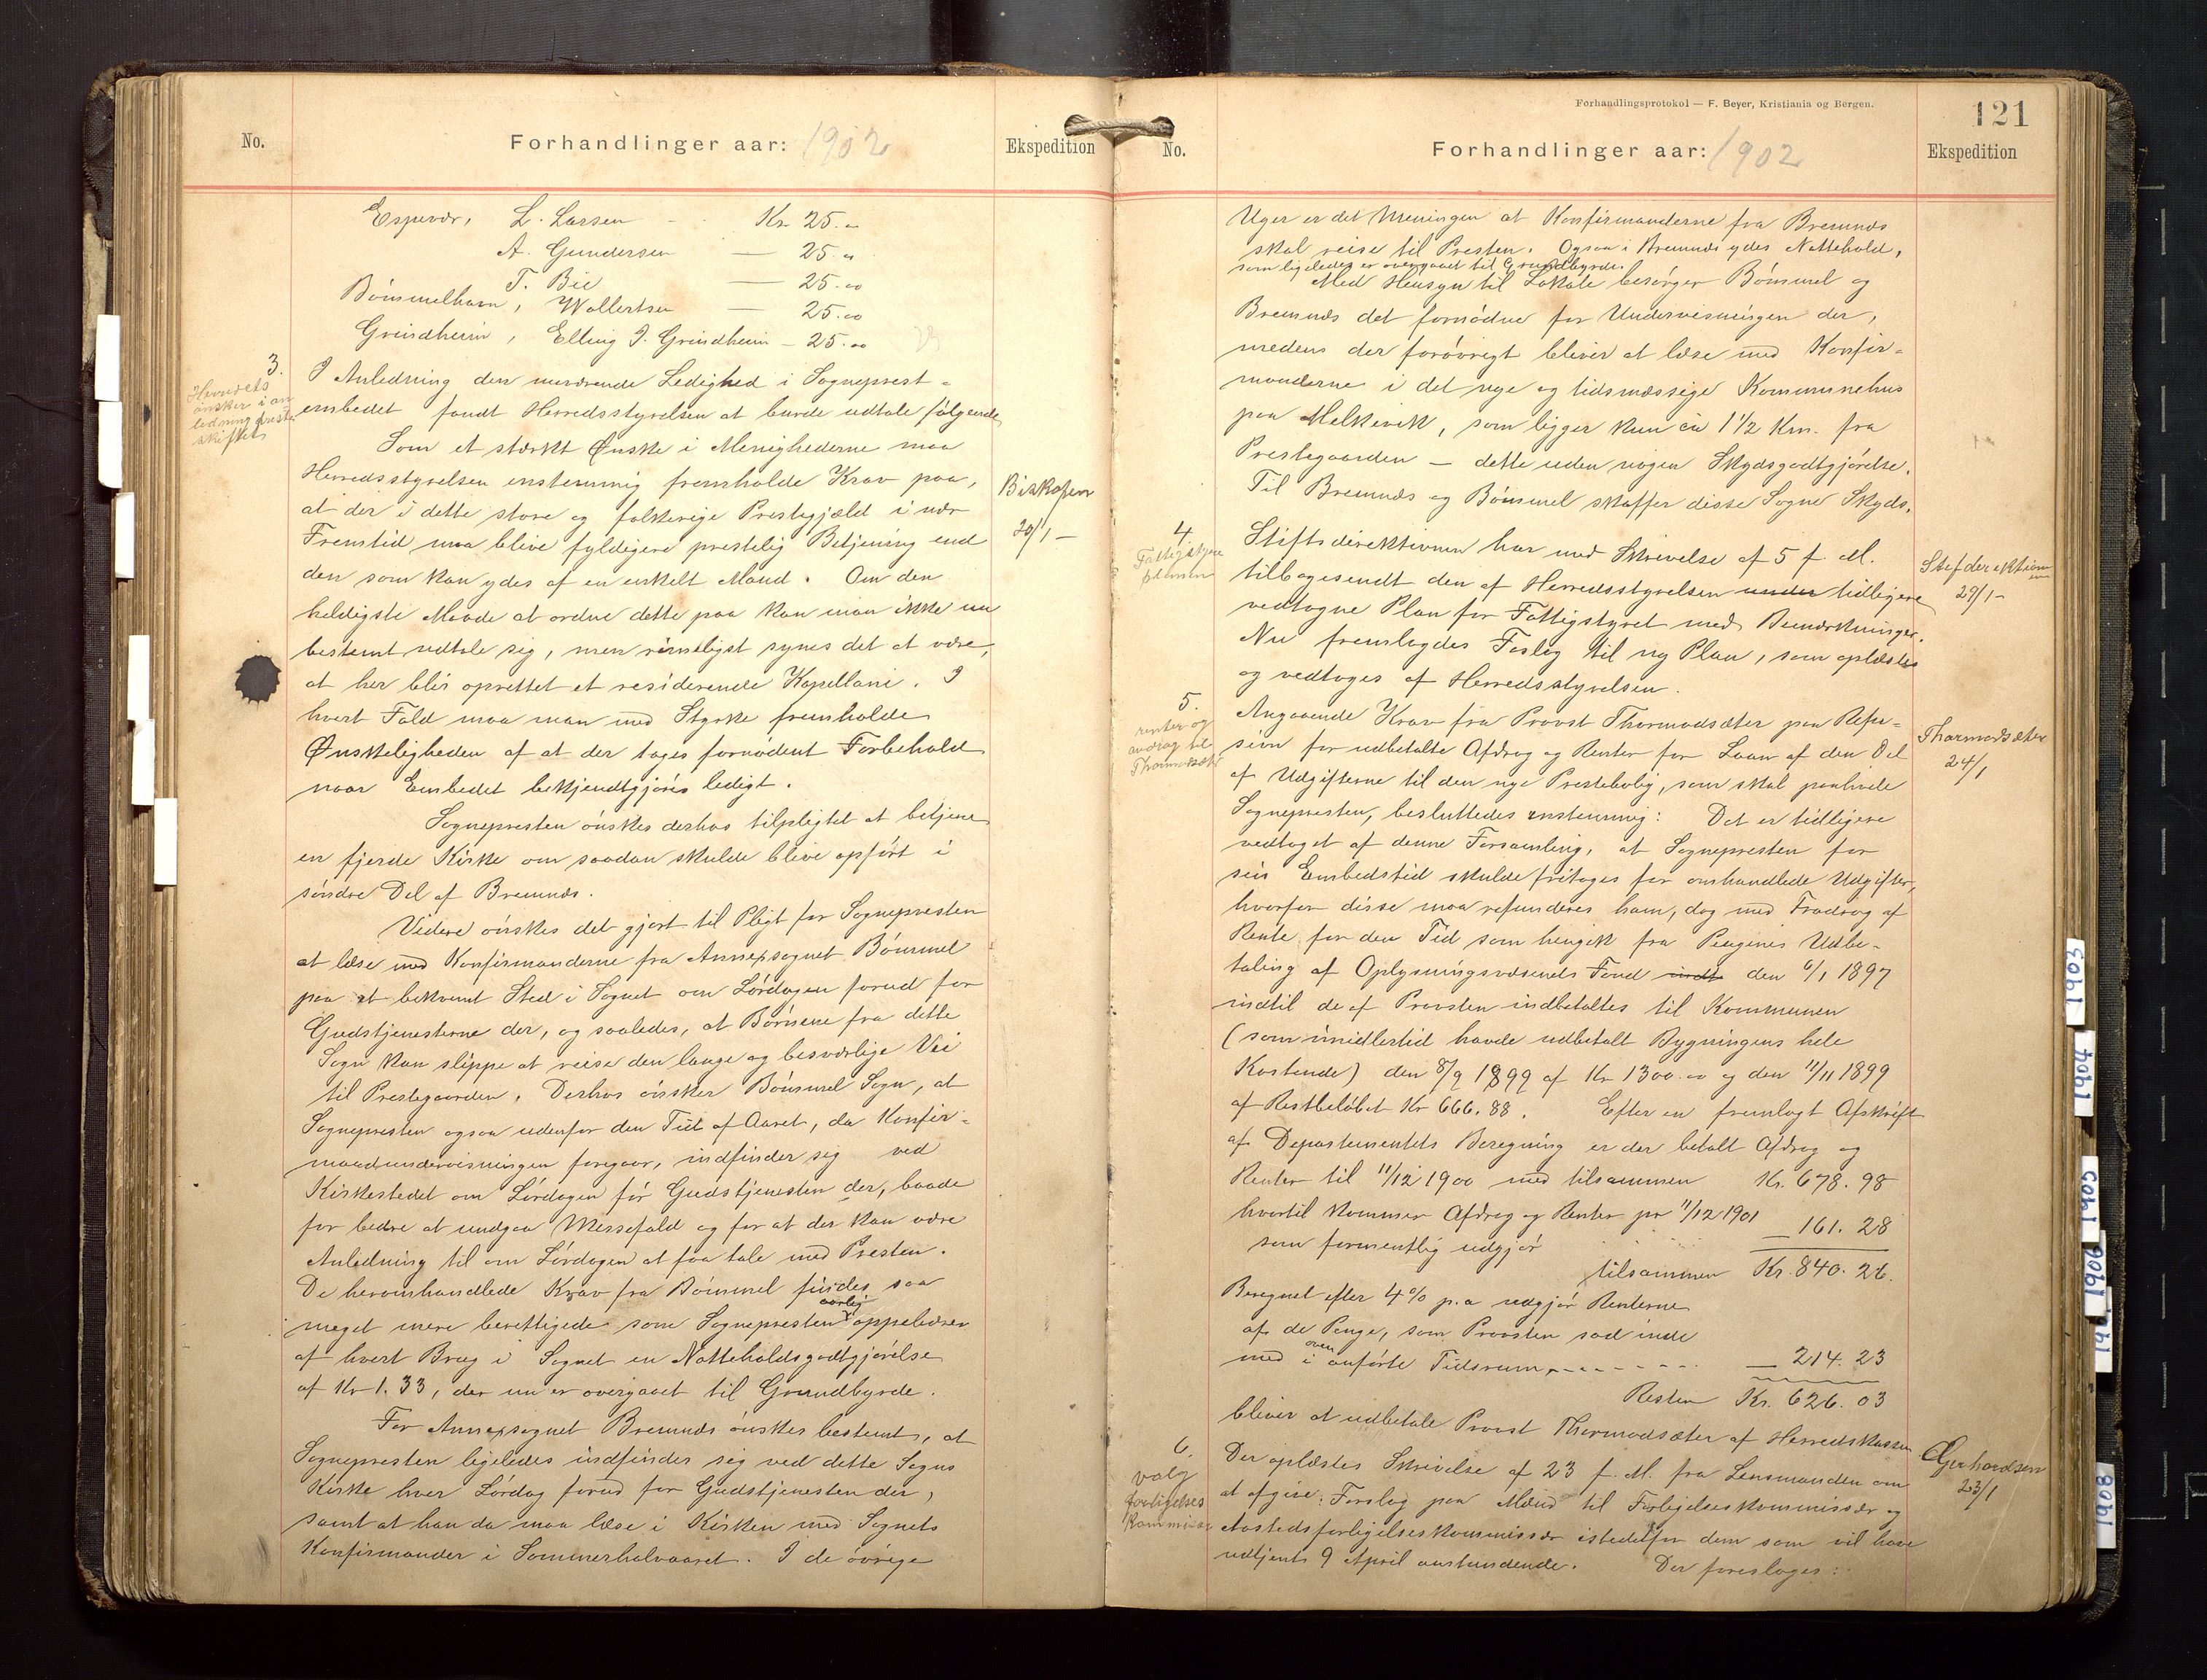 No.
Forhandlinger aar: 1902
Ekspedition
Espevær, L. Larsen - Kr 25.00
A. Gundersen — 25.00
T. Bie — 25.00
Bømmelhavn, Wollertsen — 25.00
Grindheim, Elling J. Grindheim - 25.00
3.
Herredets
ønsker i an
ledning preste
skiftet
I Anledning den nuværende Ledighed i Sogneprest-
embedet fandt Herredsstyrelsen at burde udtale følgende
Som et stærkt Ønske i Menighederne maa
Herredsstyrelsen enstemmig fremholde Krav paa,
at der i dette store og folkerige Prestegjæld i nær
Fremtid maa blive fyldigere prestelig Betjening end
den som kan ydes af en enkelt Mand. Om den
heldigste Maade at ordne dette paa kan man ikke nu
bestemt udtale sig, men rimeligst synes det at være,
at her blir oprettet et residerende Kapellani. I
hvert Fald maa man med Styrke fremholde
Ønskeligheden af at der tages fornødent Forbehold
naar Embedet bekjendtgjøres ledigt.
Biskopen
20/1 -
Sognepresten ønskes derhos tilpligtet at betjene
en fjerde Kirke om saadan skulde blive opført i
søndre Del af Bremnæs.
Videre ønskes det gjort til Pligt for Sognepresten
at læse med Konfirmanderne fra Annexsognet Bømmel
paa et bekvemt Sted i Sognet om Lørdagen forud for
Gudstjenesterne der, og saaledes, at Børnene fra dette
Sogn kan slippe at reise den lange og besværlige Vei
til Prestegaarden. Derhos ønsker Bømmel Sogn, at
Sognepresten ogsaa udenfor den Tid af Aaret, da Konfir-
mandundervisningen foregaar, indfinder sig ved
Kirkestedet om Lørdagen før Gudstjenesten der, baade
for bedre at undgaa Messefald og for at der kan være
Anledning til om Lørdagen at faa tale med Presten.
De heromhandlede Krav fra Bømmel findes saa
meget mere berettigede som Sognepresten aarlig oppebærer
af hvert Brug i Sognet en Natteholdsgodtgjørelse
af Kr 1.33, der nu er overgaaet til Grundbyrde.
For Annexsognet Bremnæs ønskes bestemt, at
Sognepresten ligeledes indfinder sig ved dette Sogns
Kirke hver Lørdag forud for Gudstjenesten der,
samt at han da maa læse i Kirken med Sognets
Konfirmander i Sommerhalvaaret. I de øvrige
Forhandlingsprotokol — F. Beyer, Kristiania og Bergen.
121
No.
Forhandlinger aar: 1902
Ekspedition
Uger er det Meningen at Konfirmanderne fra Bremnæs
skal reise til Presten. Ogsaa i Bremnæs ydes Nattehold,
som ligeledes er overgaaet til Grundbyrde.
Med Hensyn til Lokale besørger Bømmel og
Bremnæs det fornødne for Undervisningen der,
medens der forøvrigt bliver at læse med Konfir-
manderne i det nye og tidsmæssige Kommunehus
paa Melkevik, som ligger kun ca 1 1/2 Km. fra
Prestegaarden — dette uden nogen Skydsgodtgjørelse.
Til Bremnæs og Bømmel skaffer disse Sogne Skyds.
4.
Fattigstyre
planen
Stiftsdirektionen har med Skrivelse af 5 f. M.
tilbagesendt den af Herredsstyrelsen under tidligere
vedtagne Plan for Fattigstyret med Bemærkninger.
Nu fremlagdes Forslag til ny Plan, som oplæstes
og vedtoges af Herredsstyrelsen.
Stifdirektionen
29/1 -
5.
renter og
avdrag til
Thormodsæter
Angaaende Krav fra Provst Thormodsæter paa Refu-
sion for udbetalte Afdrag og Renter for Laan af den Del
af Udgifterne til den nye Prestebolig, som skal paahvile
Sognepresten, besluttedes enstemmig: Det er tidligere
vedtaget af denne Forsamling, at Sognepresten for
sin Embedstid skulde fritages for omhandlede Udgifter,
hvorfor disse maa refunderes ham, dog med Fradrag af
Rente for den Tid som hengik fra Pengenes Udbe-
taling af Oplysningsvæsenets Fond indt den 6/1 1897
indtil de af Provsten indbetaltes til Kommunen
(som imidlertid havde udbetalt Bygningens hele
Kostende) den 8/9 1899 af Kr 1300.00 og den 11/11 1899
af Restbeløbet Kr 666.88. Efter en fremlagt Afskrift
af Departementets Beregning er der betalt Afdrag og
Renter til 11/12 1900 med tilsammen Kr. 678.98
hvortil kommer Afdrag og Renter pr 11/12 1901
som formentlig udgjør — 161.28
tilsammen Kr. 840.26.
Beregnet efter 4% p.a udgjør Renterne
af de Penge, som Provsten sad inde
med i ovenanførte Tidsrum - - - - — 214.23
Resten Kr. 626.03
bliver at udbetale Provst Thormodsæter af Herredskassen
Thormodsæter
24/1
6.
valg
forligelses
kommisær
Der oplæstes Skrivelse af 23 f. M. fra Lensmanden om
at afgive Forslag paa Mænd til Forligelseskommissær og
Aastedsforligelseskommissær istedetfor dem som vil have
udtjent 9 April anstundende. Der foresloges:
Gerhardsen
23/1
1903
1904
1905
1906
1908